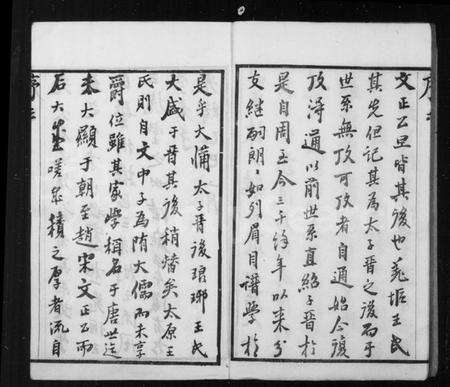 文正公旦皆其後也荒垢王氏
其先但記其為太子晉之後而于
世系無攷可攷者自通始今復
攷潯通以前世系直紹子晉於
是自周至今三千餘年以來分
支繼嗣朗朗如列眉目譜學於
是乎大備太子晉後琅琊王氏
大盛于晉其後稍替矣太原王
氏則自文中子為隋大儒而未享
爵位雖其家學稱名于唐世迄
未大顯于朝至趙宋文正公而
后大盛嗟呆積之厚者流自